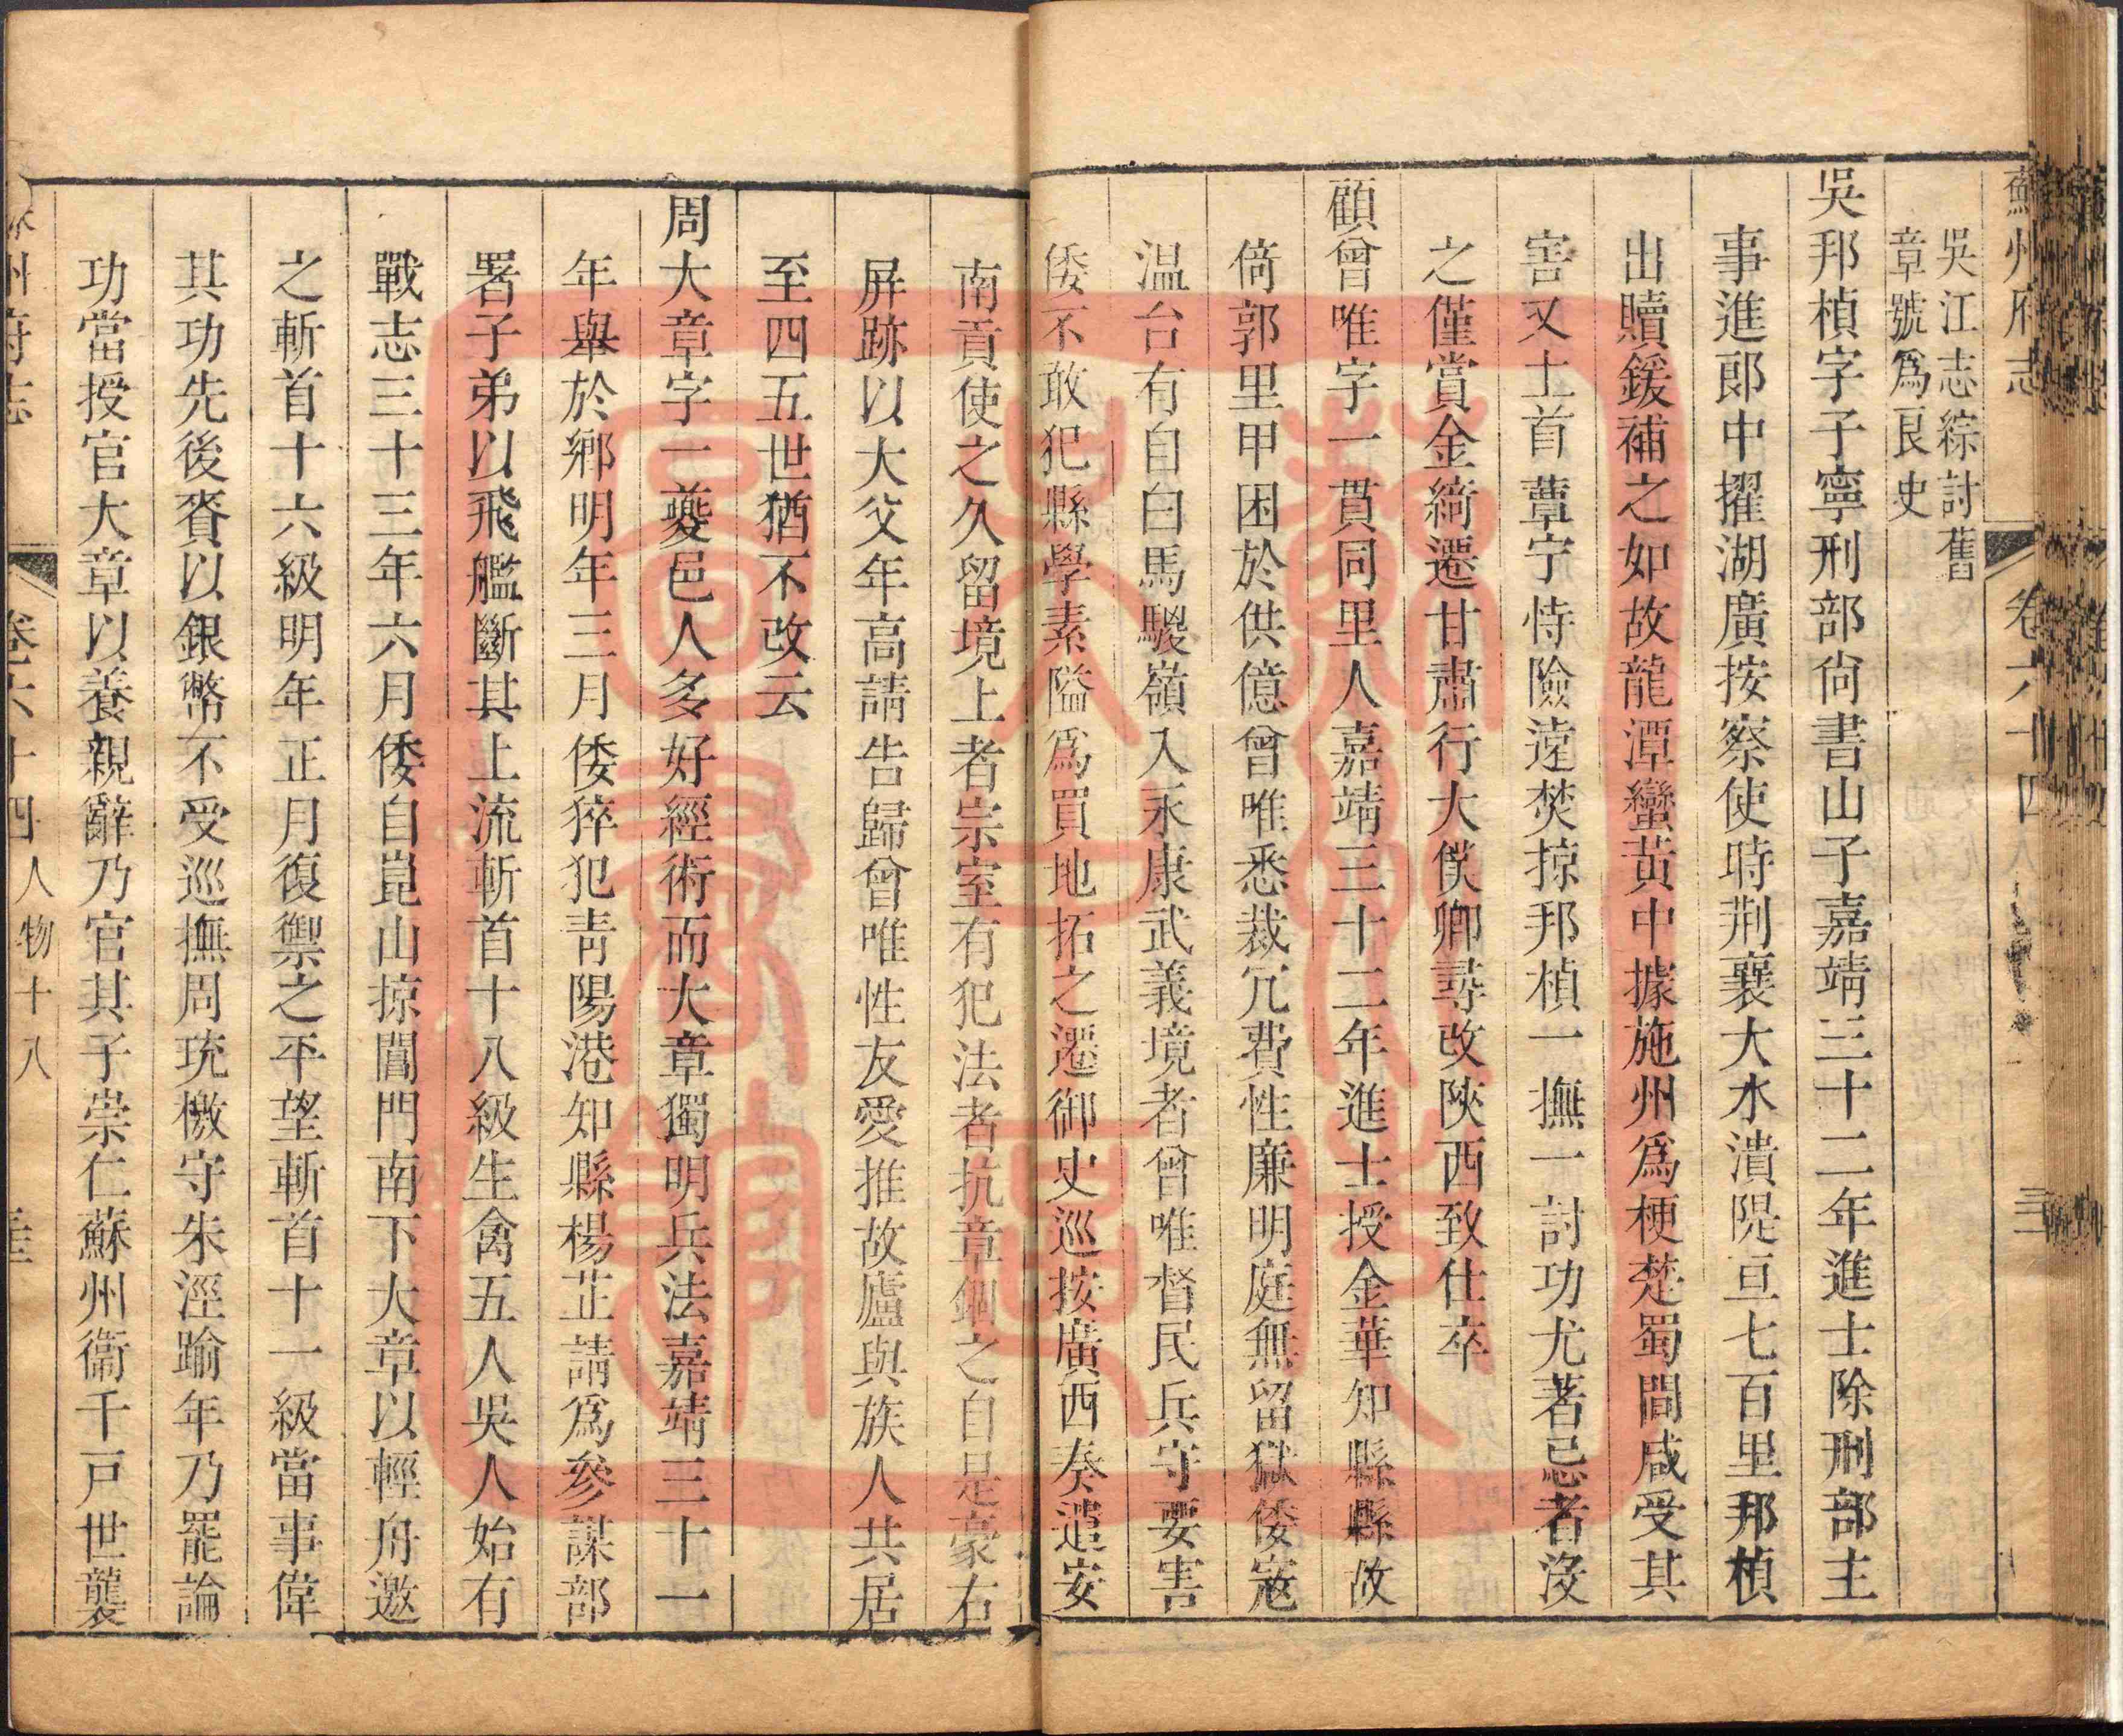 蘇州府志 卷六十四
吳江志綜討舊
章號爲良史
吳邦楨字子寧刑部尙書山子嘉靖三十二年進士除刑部主
事進郎中擢湖廣按察使時荆襄大水潰隄亘七百里邦楨
出贖鍰補之如故龍潭蠻黃中據施州爲梗楚蜀間咸受其
害又土首蕈宁恃險遠焚掠邦楨一撫一討功尤著忌者沒
之僅賞金綺遷甘肅行大僕卿尋改陝西致仕卒
顧曾唯字一貫同里人嘉靖三十二年進士授金華知縣縣故
倚郭里甲困於供億曾唯悉裁冗費性廉明庭無留獄倭寇
温台有自白馬騣嶺入永康武義境者曾唯督民兵守要害
倭不敢犯縣學素隘爲買地拓之遷御史巡按廣西奏遣安
南貢使之久留境上者宗室有犯法者抗章錮之自是豪右
屏跡以大父年高請告歸曾唯性友愛推故廬與族人共居
至四五世猶不改云
周大章字一夔邑人多好經術而大章獨明兵法嘉靖三十一
年舉於鄉明年三月倭猝犯靑陽港知縣楊芷請爲參謀部
署子弟以飛艦斷其上流斬首十八級生禽五人吳人始有
戰志三十三年六月倭自崑山掠閶門南下大章以輕舟邀
之斬首十六級明年正月復禦之平望斬首十一級當事偉
其功先後賚以銀幣不受巡撫周珫檄守朱涇踰年乃罷論
功當授官大章以養親辭乃官其子崇仁蘇州衞千戸世襲
州府志 卷六十四 人物十八